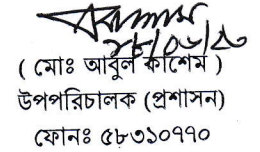 ১৮/০৬/২৩
( মোঃ আবুল কাশেম )
উপপরিচালক (প্রশাসন)
ফোনঃ ৫৮৩১০৭৭০